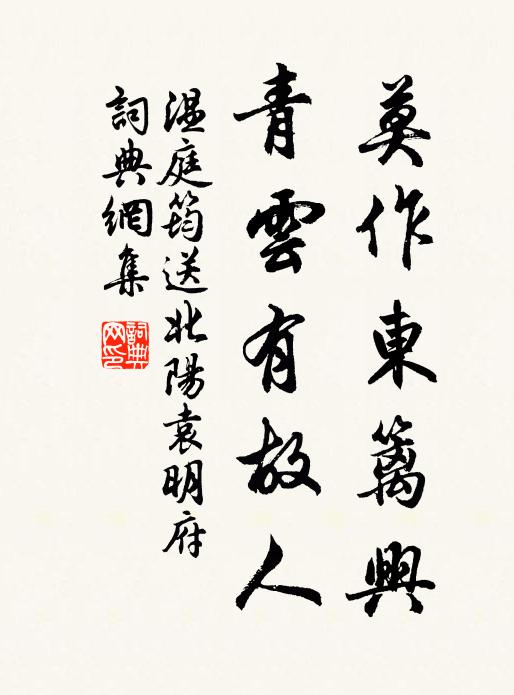 莫作東籬興
青雲有故人
温庭筠送北陽袁明府
詞典網集
詞典
网印